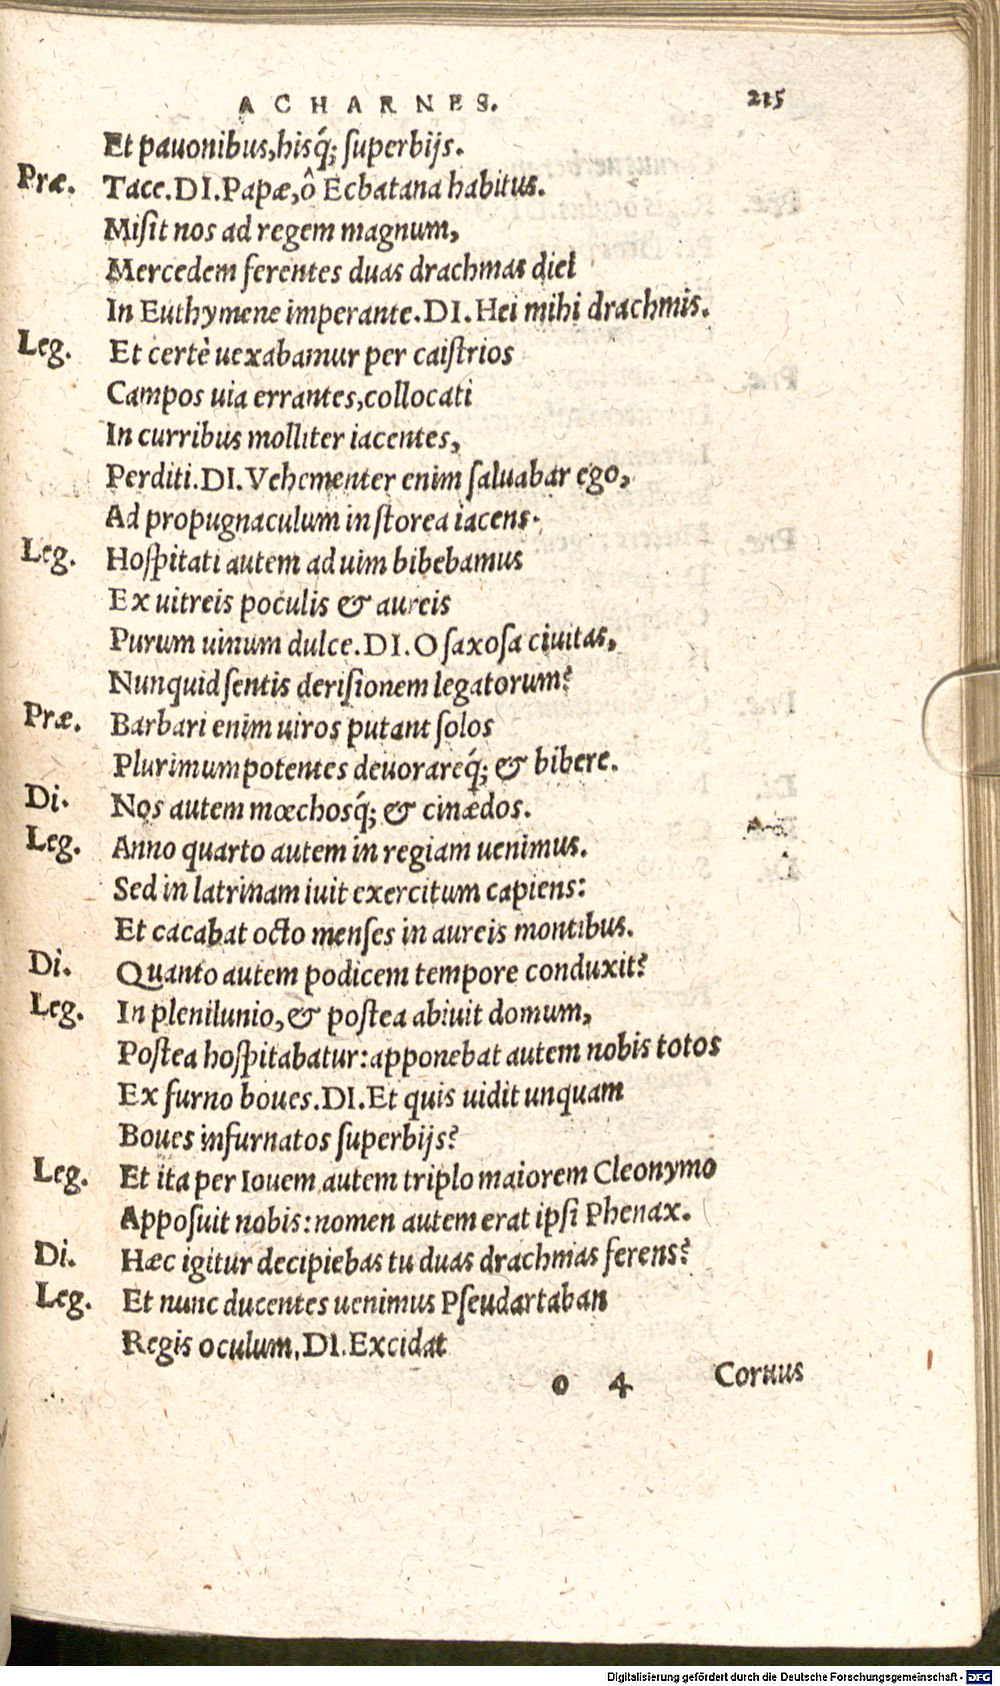 ACHARNES. 215
Et pauonibus, hisq́; superbijs.
Præ. Tace. DI. Papæ, ô Ecbatana habitus.
Misit nos ad regem magnum,
Mercedem ferentes duas drachmas diei
In Euthymene imperante. DI. Hei mihi drachmis.
Leg. Et certè uexabamur per caistrios
Campos uia errantes, collocati
In curribus molliter iacentes,
Perditi. DI. Vehementer enim saluabar ego,
Ad propugnaculum in storea iacens.
Leg. Hospitati autem ad uim bibebamus
Ex uitreis poculis & aureis
Purum uinum dulce. DI. O saxosa ciuitas,
Nunquid sentis derisionem legatorum?
Præ. Barbari enim uiros putant solos
Plurimum potentes deuorareq́; & bibere.
Di. Nos autem mœchosq́; & cinædos.
Leg. Anno quarto autem in regiam uenimus.
Sed in latrinam iuit exercitum capiens:
Et cacabat octo menses in aureis montibus.
Di. Quanto autem podicem tempore conduxit?
Leg. In plenilunio, & postea abiuit domum,
Postea hospitabatur: apponebat autem nobis totos
Ex furno boues. DI. Et quis uidit unquam
Boues infurnatos superbijs?
Leg. Et ita per Iouem autem triplo maiorem Cleonymo
Apposuit nobis: nomen autem erat ipsi Phenax.
Di. Hæc igitur decipiebas tu duas drachmas ferens?
Leg. Et nunc ducentes uenimus Pseudartaban
Regis oculum, DI. Excidat
o 4 Coruus
Digitalisierung gefördert durch die Deutsche Forschungsgemeinschaft - DFG